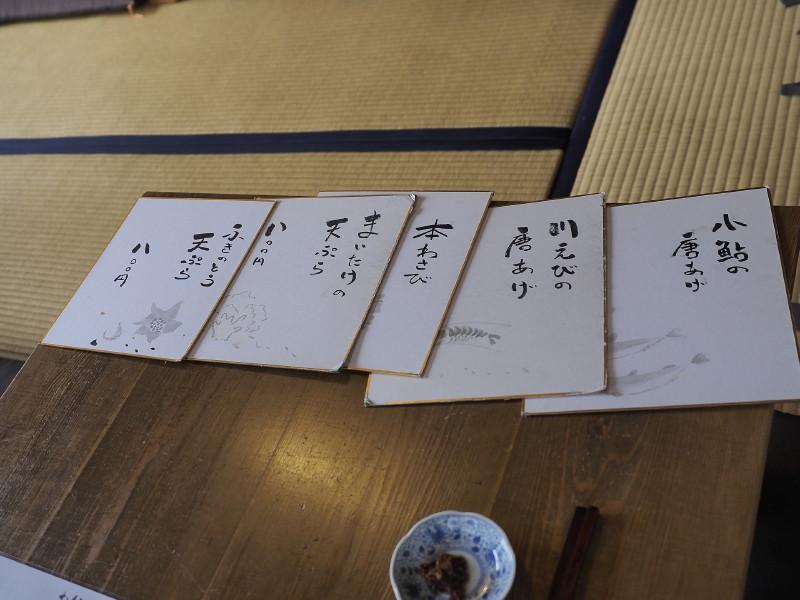 小鮎の
唐あげ
川えびの
唐あげ
本わさび
まいたけの
天ぷら
八〇〇円
ふきのとう
天ぷら
八〇〇円